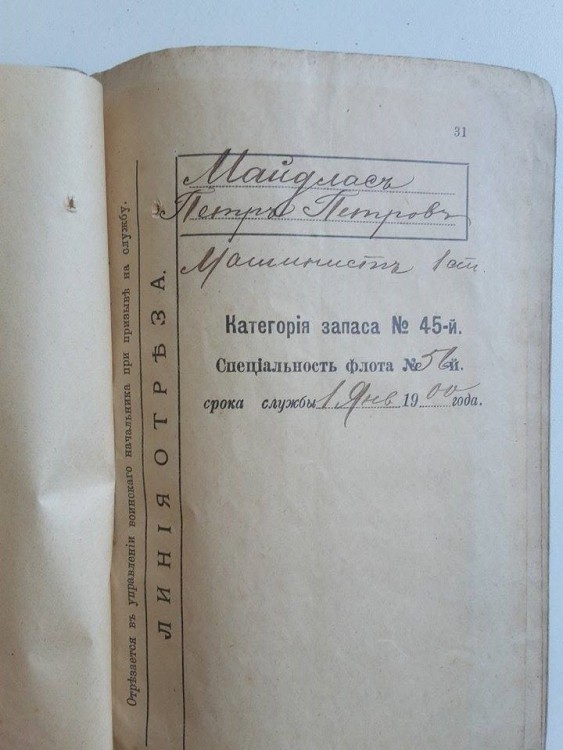 31
Майдласъ
Петръ Петровъ
Машинистъ 1 ст.
Категорія запаса № 45-й.
Спеціальность флота № 56й.
срока службы 1 Янв 1900 года.
ЛИНІЯ ОТРѢЗА.
Отрѣзается въ управленіи воинскаго начальника при призывѣ на службу.